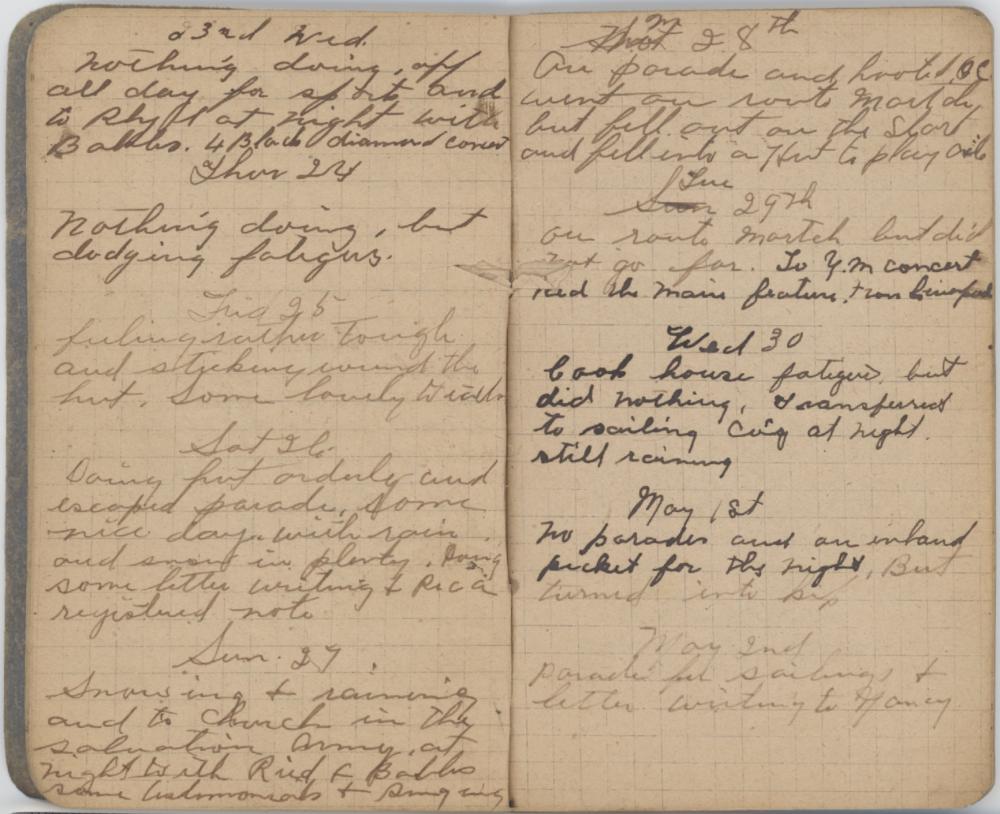 23rd Wed.
Nothing doing, off
all day for sport and
to Rhyl at night with
Babbs. 4 Black diamond concert
Thur 24
Nothing doing, but
dodging fatigues.
Frid 25
feeling rather tough
and sticking round the
hut. Some lovely
Sat 26
Doing hut orderly and
escaped parade, some
nice day. with rain
and snow in plenty. Doing
some letter writing & Rec a
registered note
Sun. 27
Snowing & raining
and to Church in the
salvation Army, at
night with Ried & Babbs
some testimonials & singing
M 28th
On parade and hooted,
went on route Martch
but fell out on the Start
and fell into a Hut to play
Tue 29th
on route Martch but did
not go far. To Y.M concert
ried the main feature. from
Wed 30
Cook house fatigue, but
did nothing, Transferred
to sailing Coy at night.
still raining
May 1st
No parades and on inland
picket for the night, But
turned into
May 2nd
Parade for sailings &
letter writing to Nancy